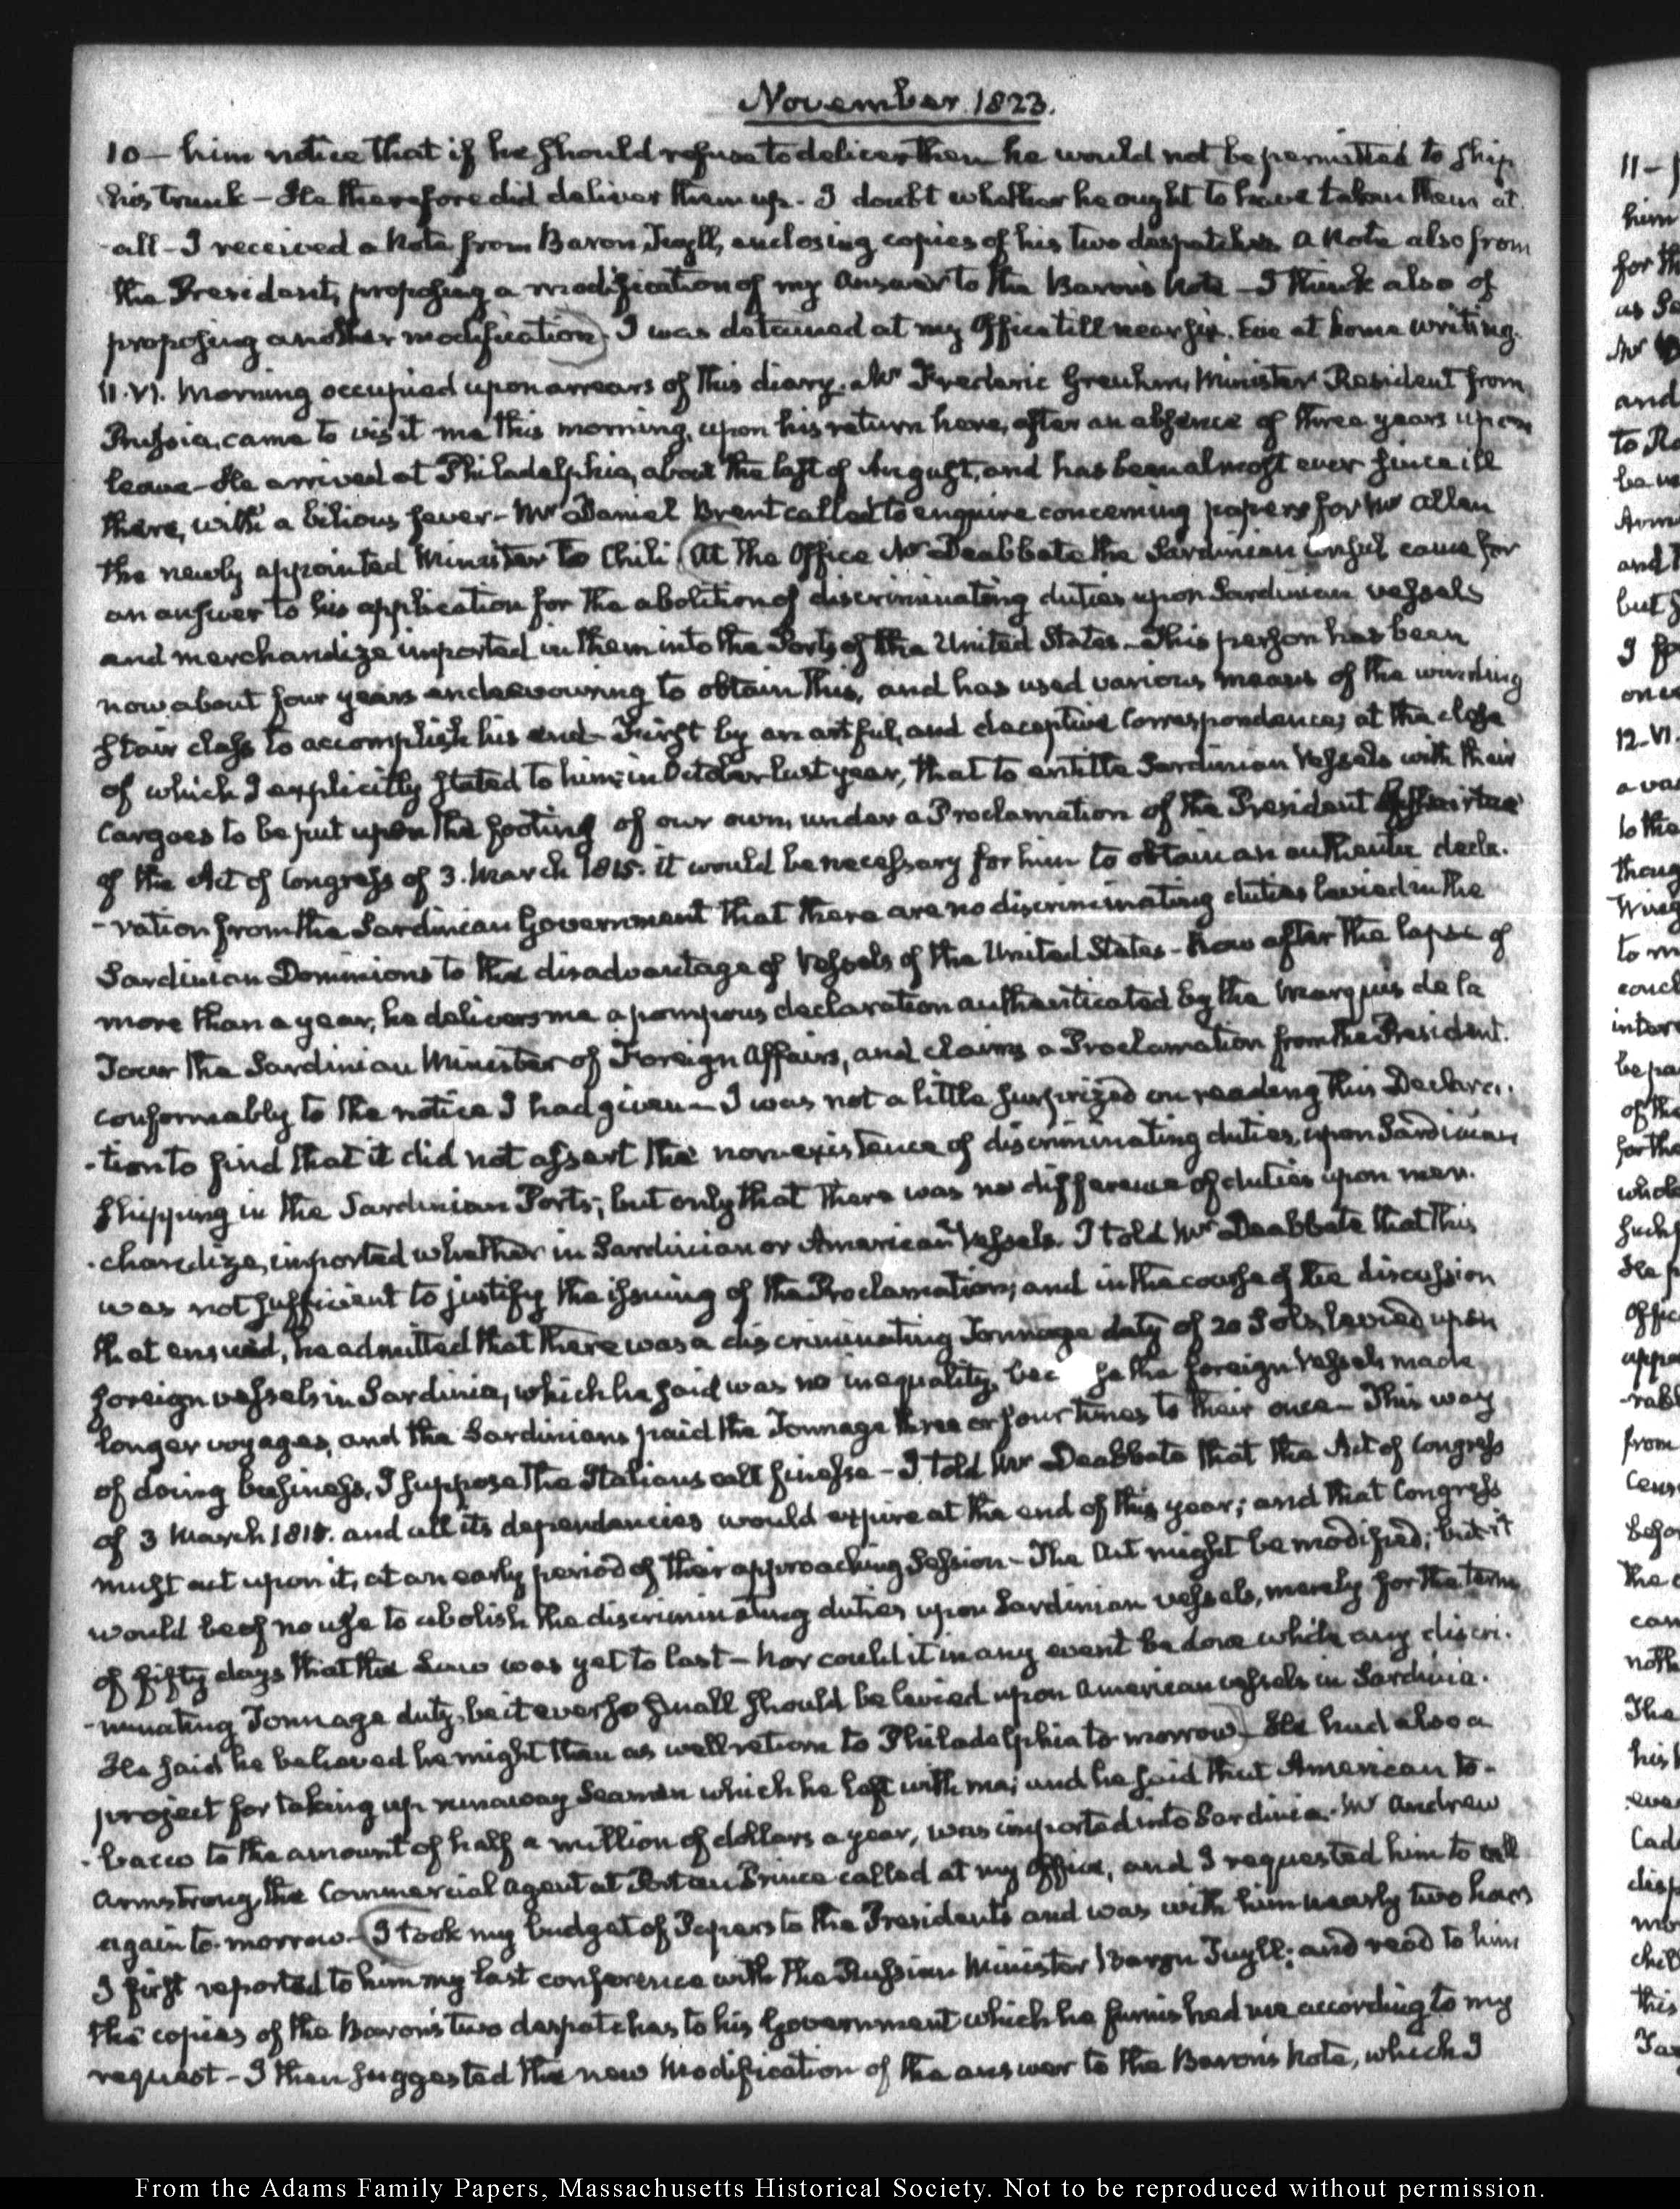 November 1823.
10 — him notice that if he should refuse to deliver them he would not be permitted to ship
his trunk — He therefore did deliver them up. I doubt whether he ought to have taken them at
all — I received a Note from Baron Tuyll, enclosing copies of his two despatches. A Note also from
the President, proposing a modification of my Answer to the Baron's Note — I think also of
proposing another modification. I was detained at my Office till near six. Eve at home writing.
11. VI. Morning occupied upon arrears of this diary. Mr Frederic Greuhm, Minister Resident from
Prussia, came to visit me this morning, upon his return here, after an absence of three years upon
leave — He arrived at Philadelphia, about the last of August, and has been almost ever since ill
there, with a bilious fever — Mr Daniel Brent called to enquire concerning papers for Mr Allen
the newly appointed Minister to Chili (At the Office Mr Deabbate the Sardinian Consul came for
an answer to his application for the abolition of discriminating duties upon Sardinian vessels
and merchandize imported in them into the Ports of the United States — This person has been
now about four years endeavouring to obtain this, and has used various means of the winding
stair class to accomplish his end — First by an artful, and deceptive Correspondence; at the close
of which I explicitly stated to him, in October last year, that to entitle Sardinian Vessels with their
Cargoes to be put upon the footing of our own, under a Proclamation of the President by virtue
of the Act of Congress of 3. March 1815. it would be necessary for him to obtain an authentic decla-
-ration from the Sardinian Government that there are no discriminating duties levied in the
Sardinian Dominions to the disadvantage of Vessels of the United States — Now after the lapse of
more than a year, he delivers me a pompous declaration authenticated by the Marquis de la
Tour the Sardinian Minister of Foreign Affairs, and claims a Proclamation from the President.
conformably to the notice I had given — I was not a little surprized on reading this Declara-
-tion to find that it did not assert the non-existence of discriminating duties, upon Sardinian
shipping in the Sardinian Ports; but only that there was no difference of duties upon mer-
-chandize, imported whether in Sardinian or American Vessels. I told Mr Deabbate that this
was not sufficient to justify the issuing of the Proclamation; and in the course of the discussion
that ensued, he admitted that there was a discriminating Tonnage duty of 20 Sols, levied upon
foreign vessels in Sardinia, which he said was no inequality, because the foreign Vessels made
longer voyages, and the Sardinians paid the Tonnage three or four times to their once — This way
of doing business, I suppose the Italians call finesse — I told Mr Deabbate that the Act of Congress
of 3 March 1815. and all its dependancies would expire at the end of this year; and that Congress
must act upon it, at an early period of their approaching Session — The Act might be modified; but it
would be of no use to abolish the discriminating duties upon Sardinian vessels, merely for the term
of fifty days that the Law was yet to last — Nor could it in any event be done while any discri-
-minating Tonnage duty, be it ever so small should be levied upon American vessels in Sardinia.
He said he believed he might then as well return to Philadelphia to-morrow) — He had also a
project for taking up runaway Seamen which he left with me; and he said that American to-
-bacco to the amount of half a million of dollars a year, was imported into Sardinia. Mr Andrew
Armstrong, the Commercial Agent at Port au Prince called at my Office, and I requested him to call
again to-morrow — (I took my budget of Papers to the President's and was with him nearly two hours
I first reported to him my last conference with the Russian Minister Baron Tuyll; and read to him
the copies of the Baron's two despatches to his Government which he furnished me according to my
request — I then suggested the new Modification of the answer to the Baron's Note, which I
From the Adams Family Papers, Massachusetts Historical Society. Not to be reproduced without permission.